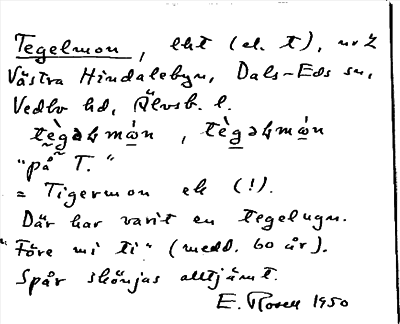 Tegelmon, lht (el. t), nr 2
Västra Hindalebyn, Dals-Eds sn,
Vedbo hd, Älvsb. l.
tḛ̀g̰əɫmὼn, tèg̲əɫmω̲n
"på T."
= Tigermon ek (!).
Där har varit en tegelugn.
"Före mi ti" (medd. 60 år).
Spår skönjas alltjämt.
E. Rosell 1950